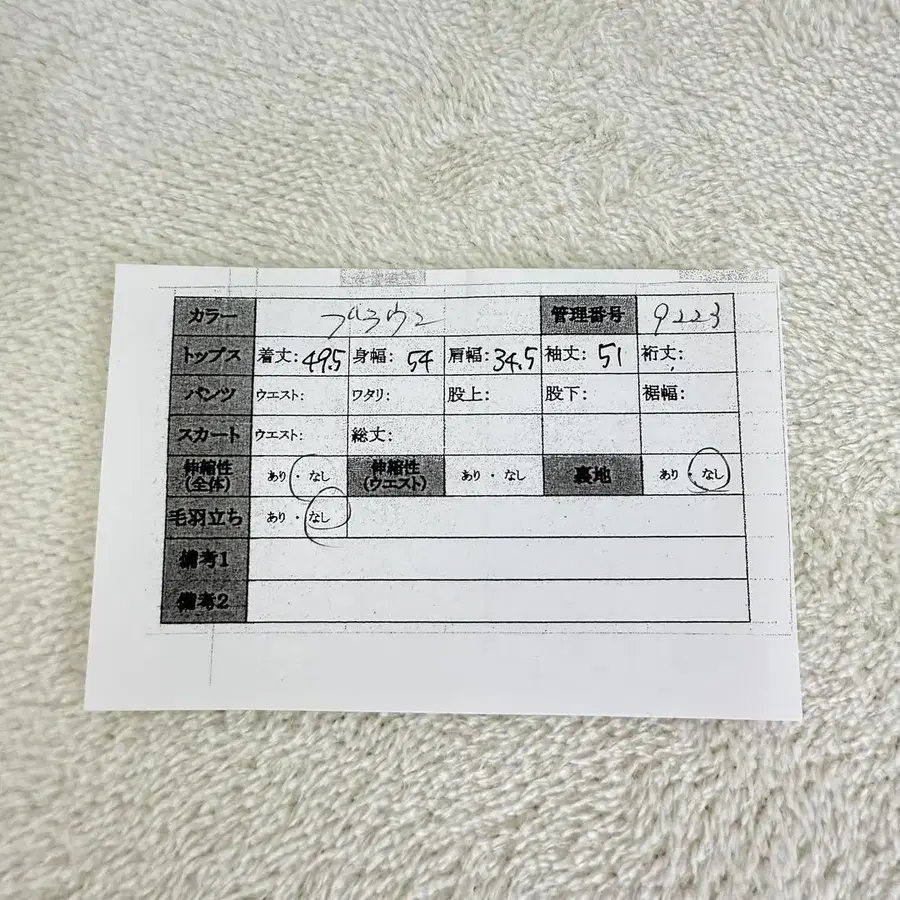 カラー ブラウン 管理番号 9223
トップス 着丈: 49.5 身幅: 54 肩幅: 34.5 袖丈: 51 裄丈:
パンツ ウエスト: ワタリ: 股上: 股下: 裾幅:
スカート ウエスト: 総丈:
伸縮性(全体) あり・なし 伸縮性(ウエスト) あり・なし 裏地 あり・なし
毛羽立ち あり・なし
備考1
備考2